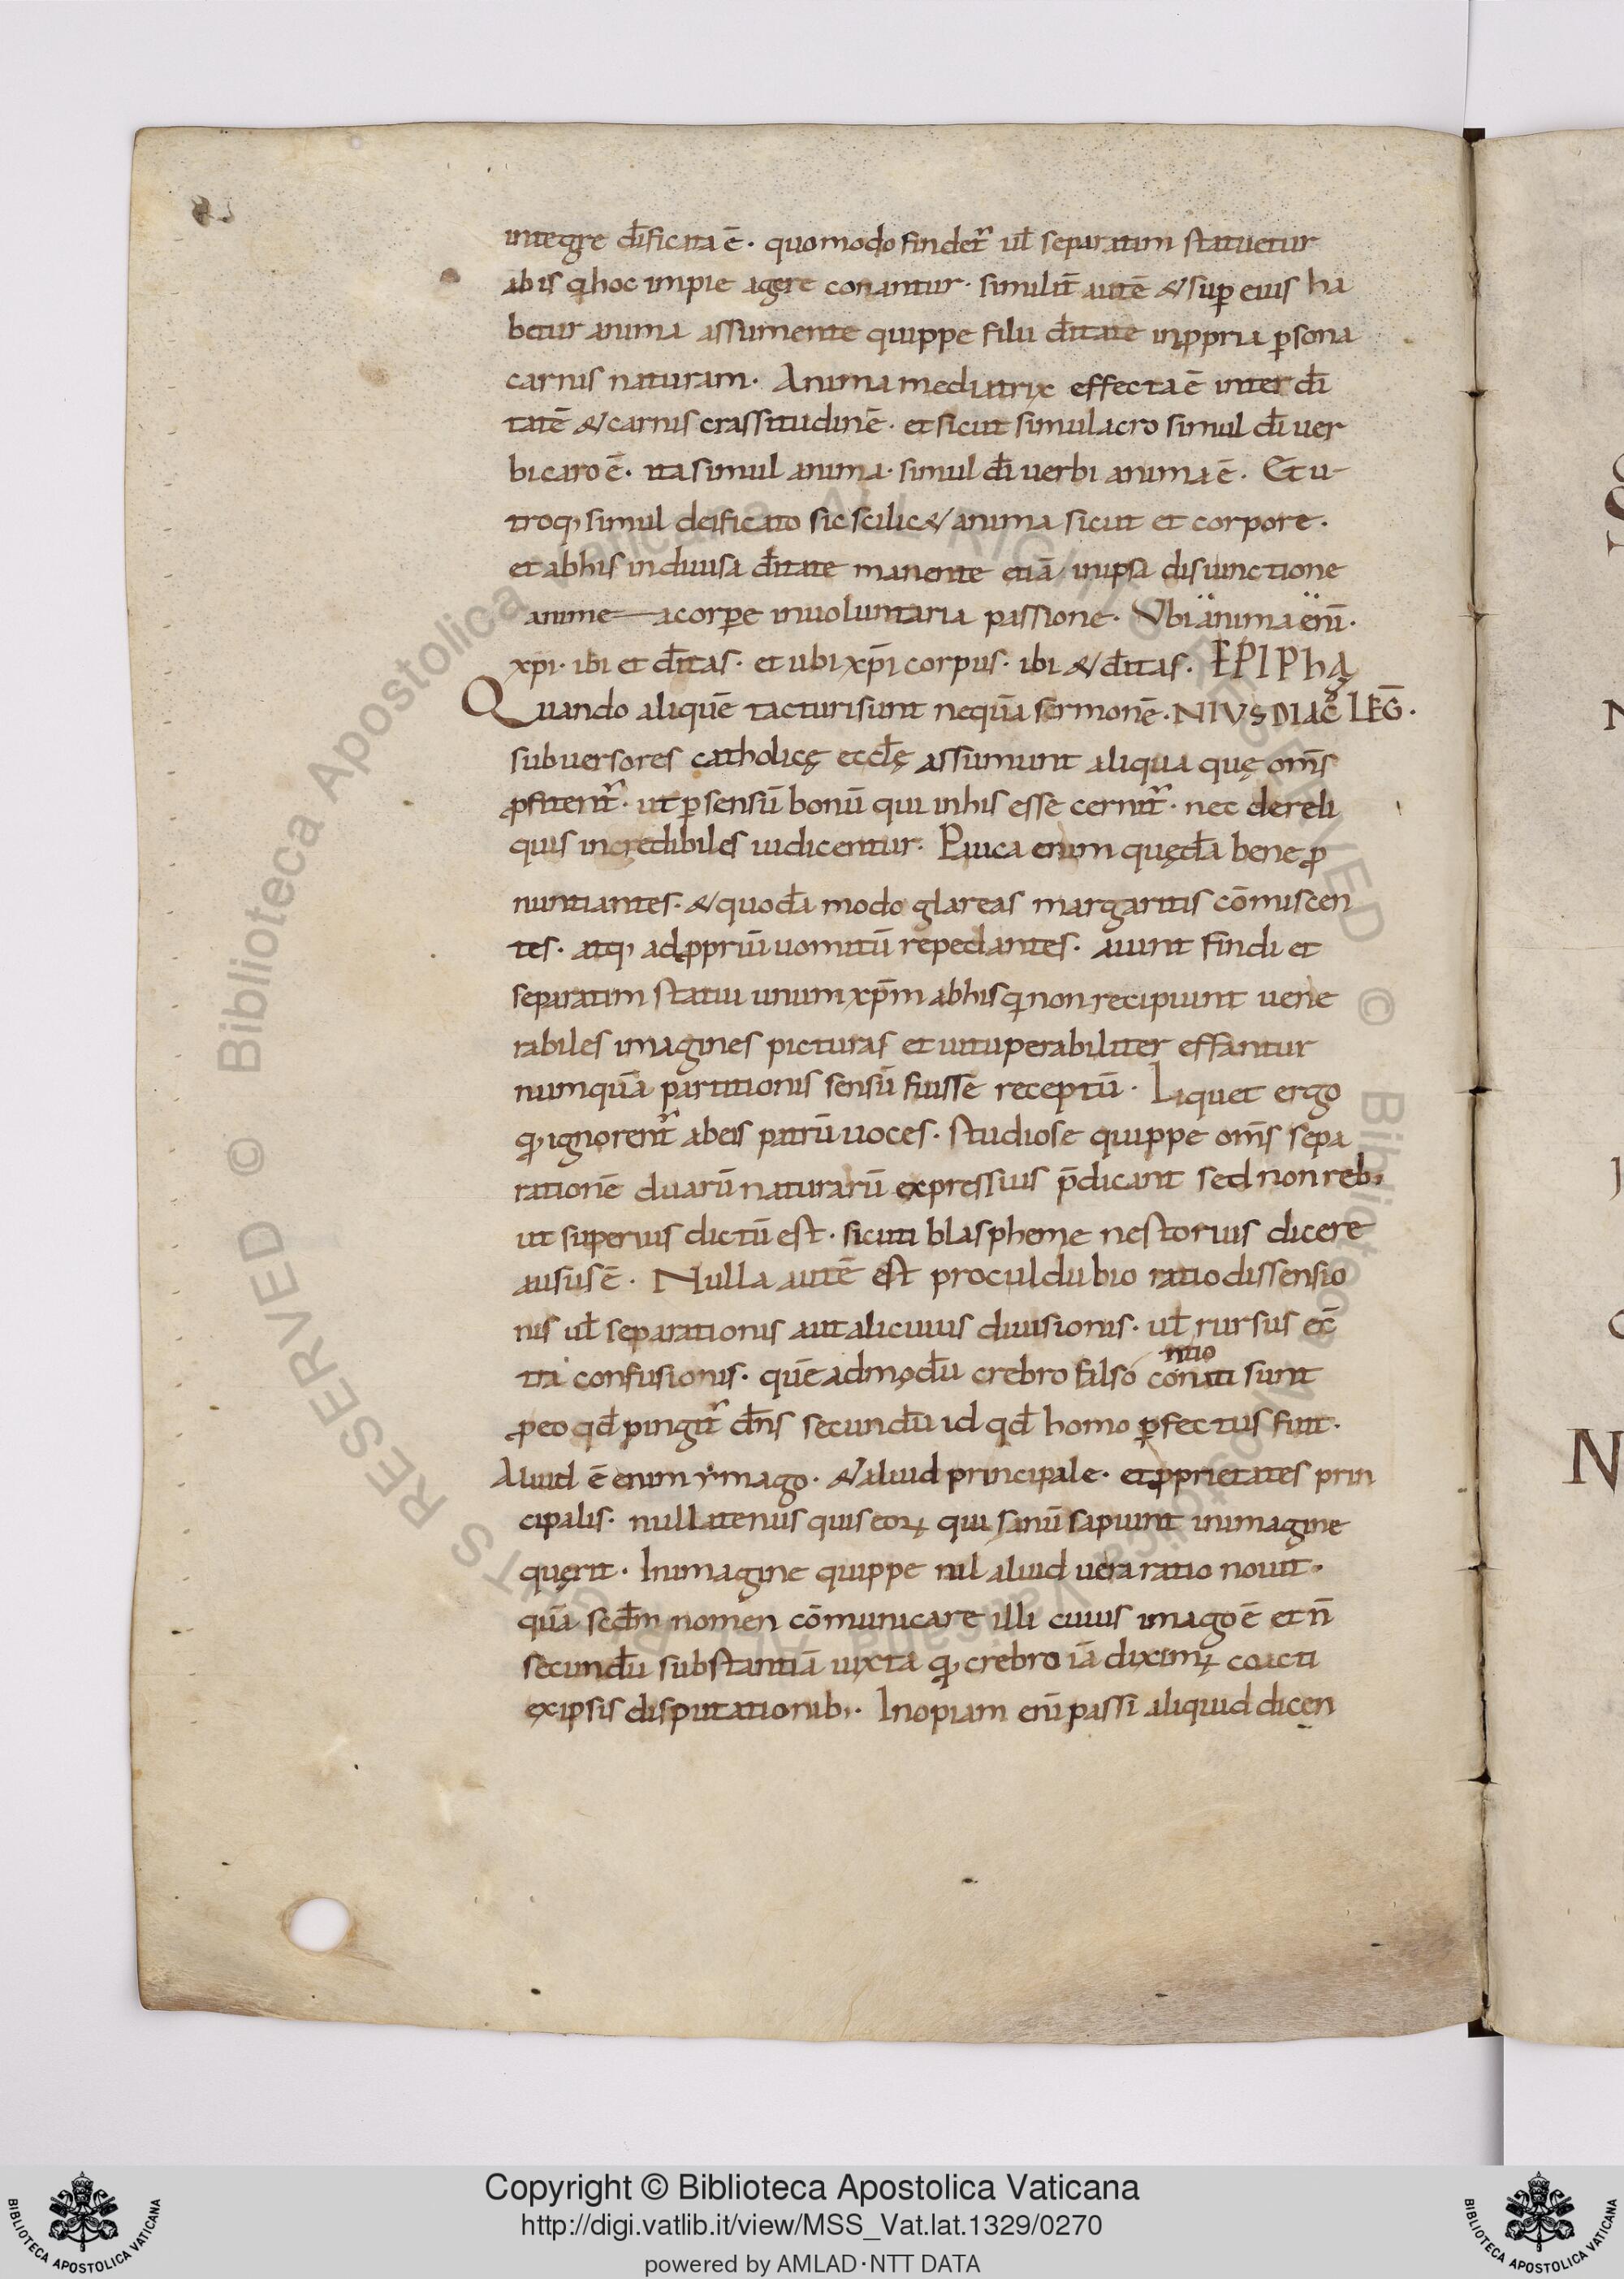 integre d̄ificata ē · quomodo findet᷑ ul̄ separatim statuetur
ab is q hoc impie agere conantur · similit̄ autē & sup eius ha
betur anima assumente quippe filii d̄itate in ꝓpria ꝑsona
carnis naturam · Anima mediatrix effecta ē inter di̅
tatē & carnis crassitudinē · et sicut simulacro simul di̅ uer
bi caro ē · ita simul anima · simul di̅ uerbi anima ē · Et u-
troq; simul deificato sic scilic& anima sicut et corpore ·
et ab his indiuisa d̄itate manente etiā in ipsa disiunctione
anime — a corꝑe in uoluntaria passione · Vbi anima eni̅ ·
xp̄i · ibi et d̄itas · et ubi xp̄i corpus · ibi & d̄itas · EPIPhA
Quando aliquē tacturi sunt nequā sermonē · NIVS DIAC̄ LEḠ ·
subuersores catholicę eccl̄ę assumunt aliqua quę om̄s
ꝓfitent᷑ · ut ꝑ sensū bonū qui in his esse cernit᷑ · nec de reli
quis incredibiles iudicentur · Pauca enim quędā bene ꝓ
nuntiantes · & quodā modo glareas margaritis cōmiscen
tes · atq; ad ꝓpriū uomitū repedantes · aiunt findi et
separatim statui unum xp̄m ab his q non recipiunt uene
rabiles imagines picturas et uituperabiliter effantur
numquā partitionis sensū fuisse receptū · Liquet ergo
q ignorent᷑ ab eis patrū uoces · studiose quippe om̄s sepa
rationē duarū naturarū expressius p̄dicant sed non reb;
ut superius dictū est · sicuti blaspheme nestorius dicere
ausus ē · Nulla autē est proculdubio ratio dissensio
nis ul̄ separationis aut alicuius diuisionis · ul̄ rursus ec̄
tra confusionis · quē admodū crebro falso conati sunt
ntio
ꝓ eo qd̄ pingit᷑ dn̄s secundū id qd̄ homo ꝑfectus fuit ·
Aliud ē enim ymago · & aliud principale · et ꝓprietates prin
cipalis · nullatenus quis eoꝝ qui sanū sapiunt in imagine
quęrit · In imagine quippe nil aliud uera ratio nouit ·
quā secd̄m nomen cōmunicare illi cuius imago ē et n̄
secundū substantiā iuxta q crebro iā diximꝰ coacti
ex ipsis disputationib; · Inopiam eni̅ passi aliquid dicen
Copyright © Biblioteca Apostolica Vaticana
http://digi.vatlib.it/view/MSS_Vat.lat.1329/0270
powered by AMLAD·NTT DATA
BIBLIOTECA APOSTOLICA VATICANA
BIBLIOTECA APOSTOLICA VATICANA